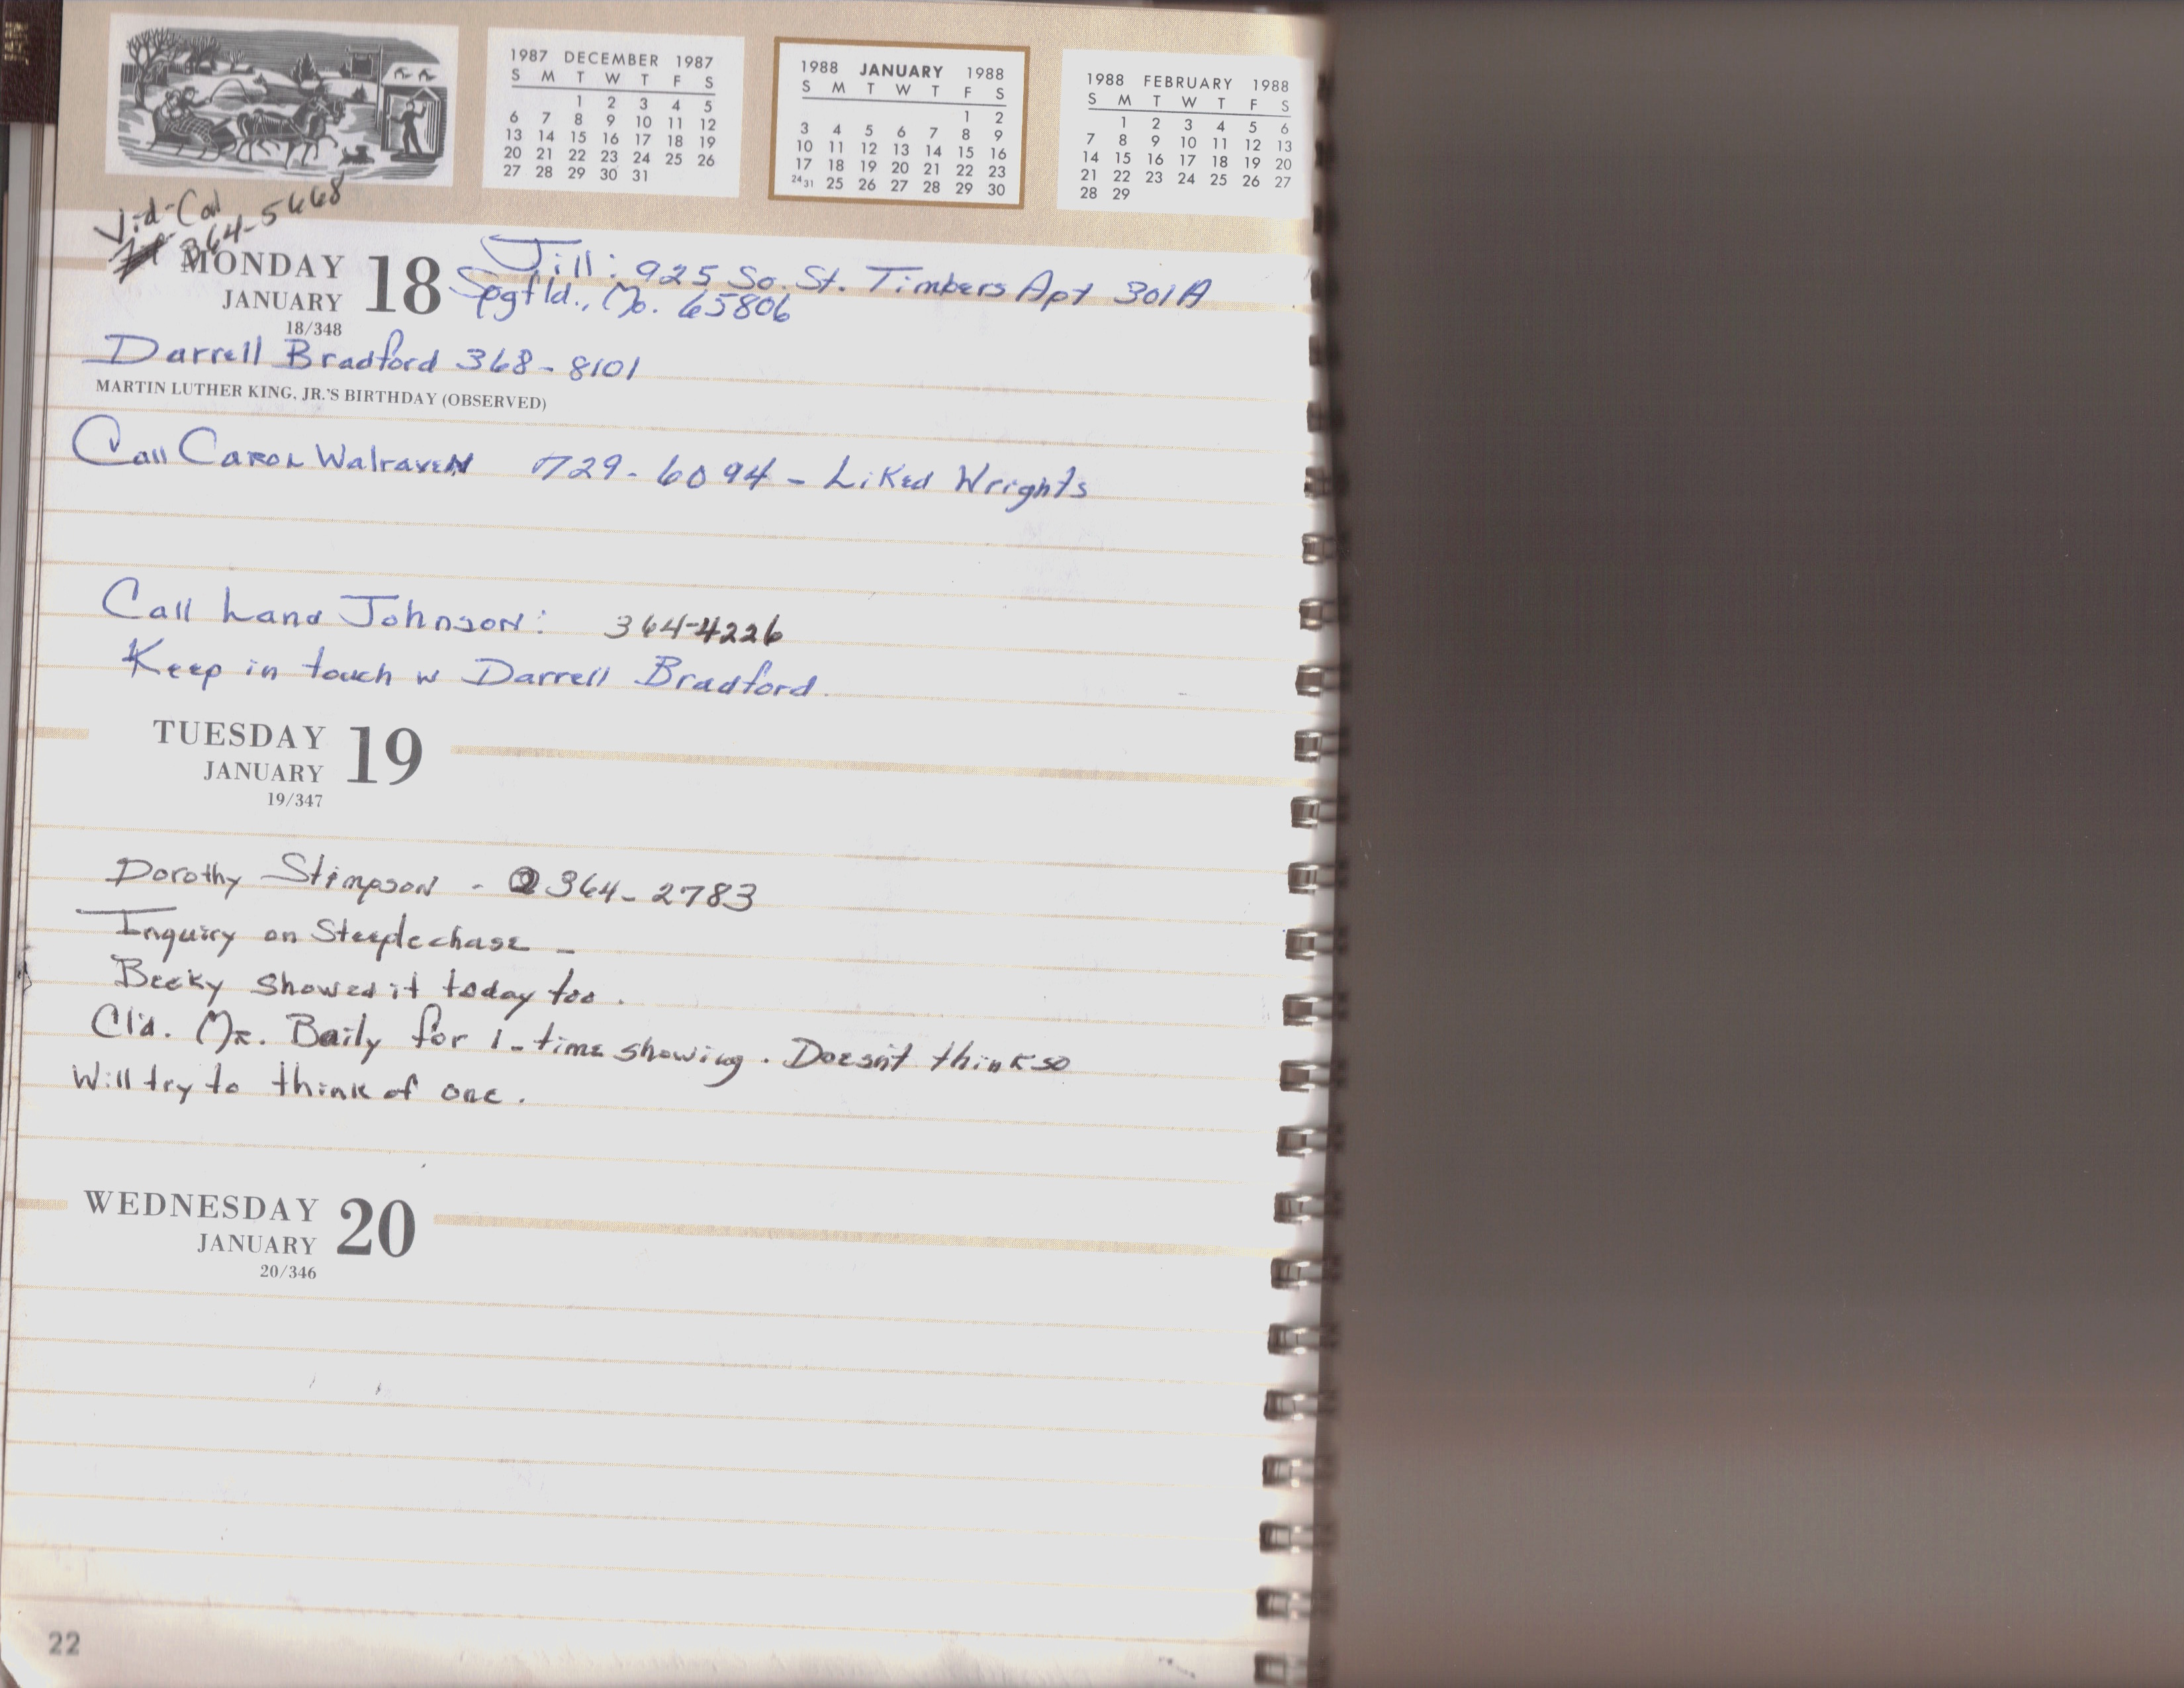 JAN
1987 DECEMBER 1987
S M T W T F S
1 2 3 4 5
6 7 8 9 10 11 12
13 14 15 16 17 18 19
20 21 22 23 24 25 26
27 28 29 30 31
1988 JANUARY 1988
S M T W T F S
1 2
3 4 5 6 7 8 9
10 11 12 13 14 15 16
17 18 19 20 21 22 23
24/31 25 26 27 28 29 30
1988 FEBRUARY 1988
S M T W T F S
1 2 3 4 5 6
7 8 9 10 11 12 13
14 15 16 17 18 19 20
21 22 23 24 25 26 27
28 29
364-5668
MONDAY 18
JANUARY
18/348
Jill: 925 So. St. Timbers Apt 301A
Spgfld., Mo. 65806
Darrell Bradford 368-8101
MARTIN LUTHER KING, JR.'S BIRTHDAY (OBSERVED)
Call Carol Walraven 729-6094 - Liked Wrights
Call Land Johnson: 364-4226
Keep in touch w Darrell Bradford.
TUESDAY 19
JANUARY
19/347
Dorothy Stimpson - 364-2783
Inquiry on Steeplechase -
Becky showed it today too.
Cl'd. Mr. Baily for 1-time showing. Doesn't think so
Will try to think of one.
WEDNESDAY 20
JANUARY
20/346
22